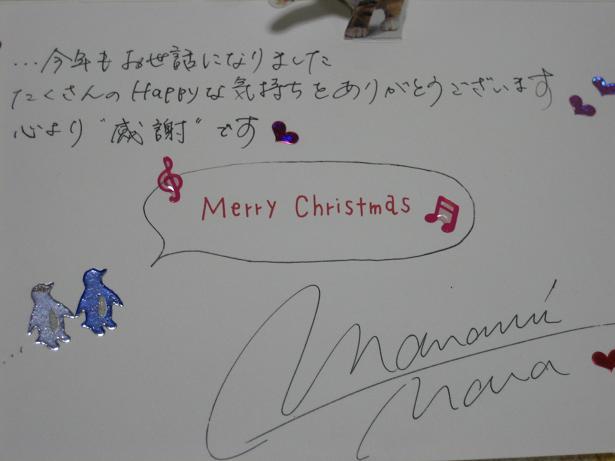 ...今年もお世話になりました
たくさんのHappyな気持ちをありがとうございます
心より"感謝"です
Merry Christmas
...
Manami